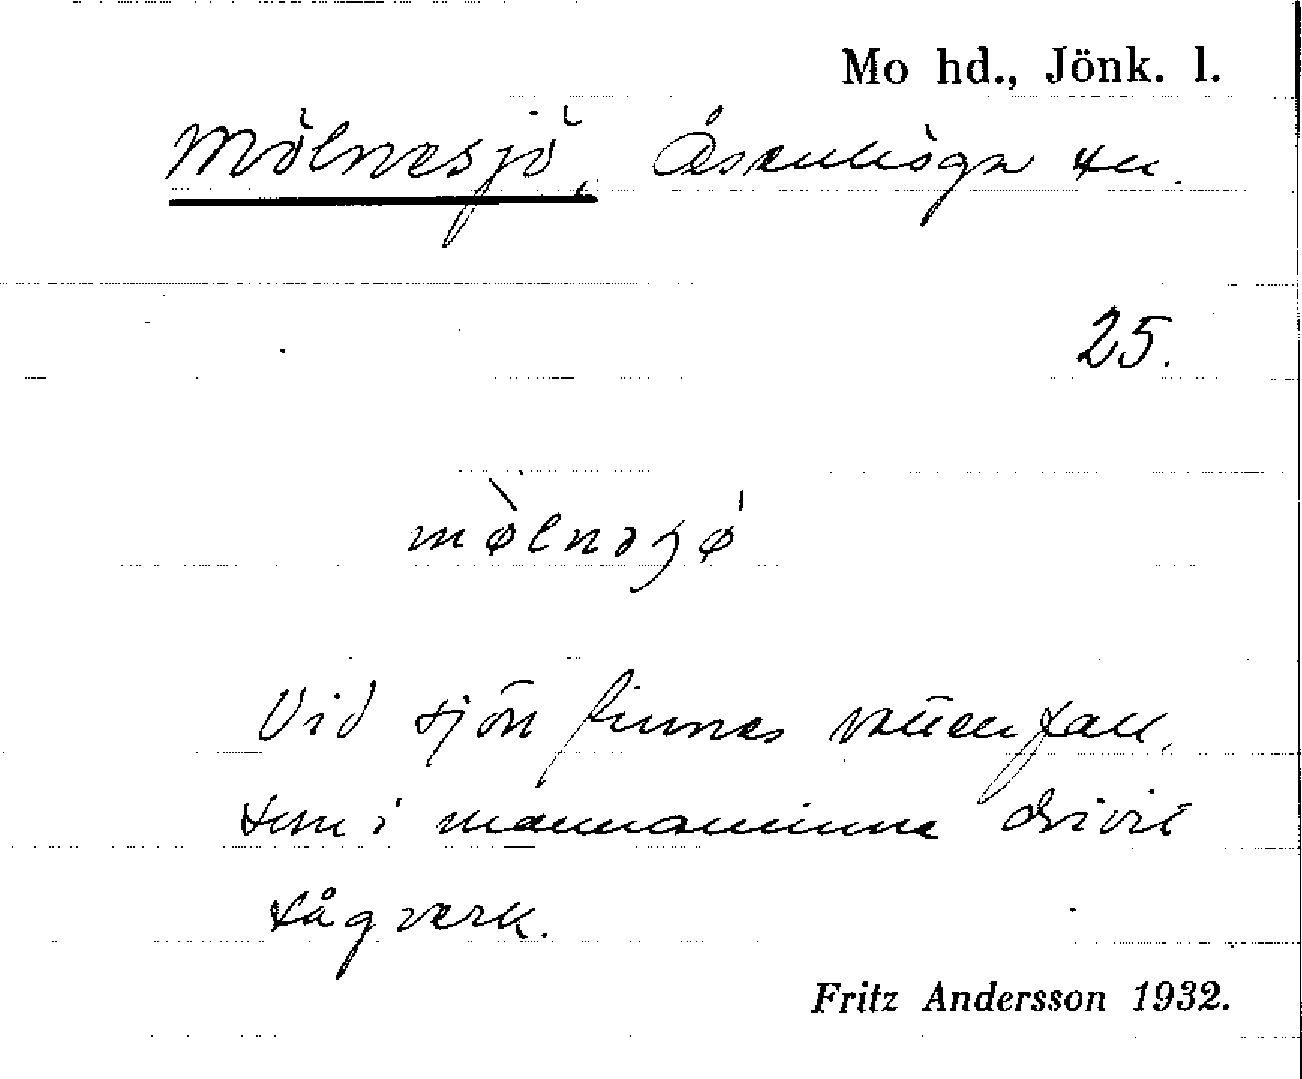 Mo hd., Jönk. l.
Mölnesjö, Åsenhöga sn.
25.
mø̀lnəʂǿ
Vid sjön finnes vattenfall,
som i mannaminne drivit
sågverk.
Fritz Andersson 1932.